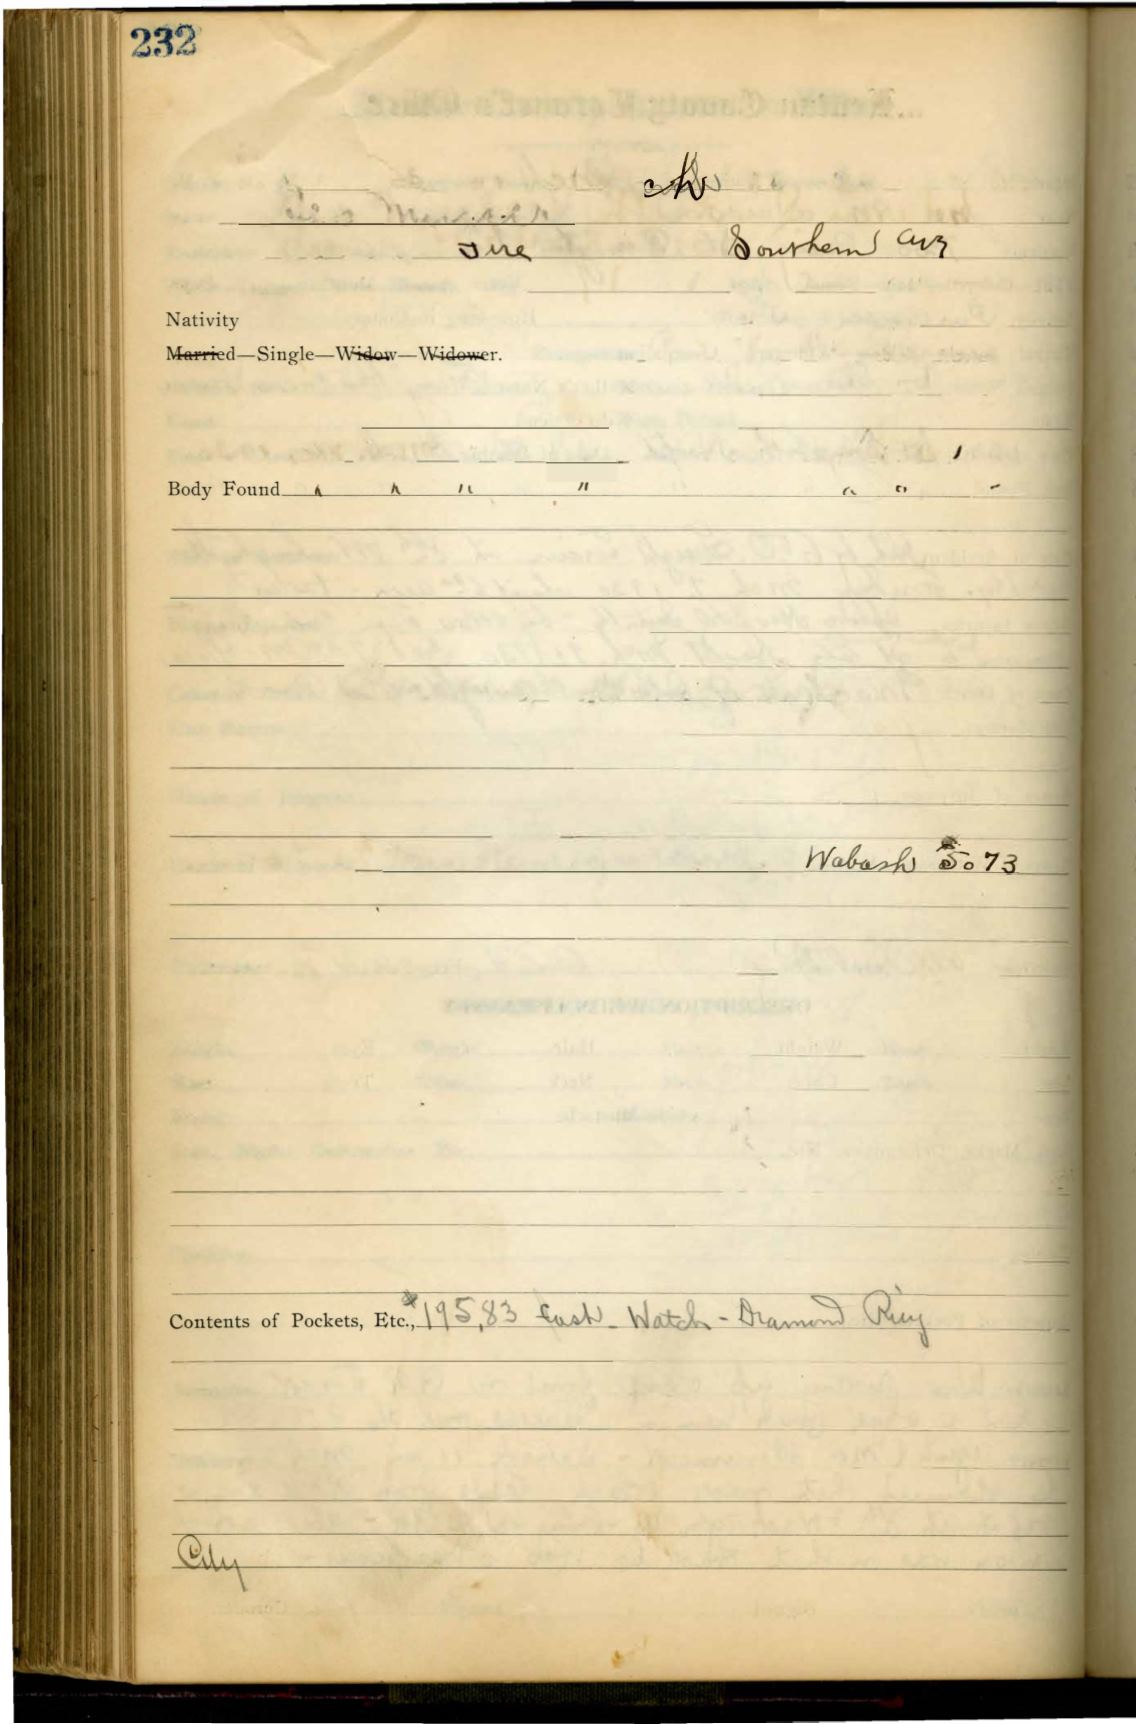 232
Mr
Southern Ave
Nativity
Married—Single—Widow—Widower.
Body Found " " " " " " "
Wabash 5073
Contents of Pockets, Etc., $195,83 Cash - Watch - Diamond Ring
City